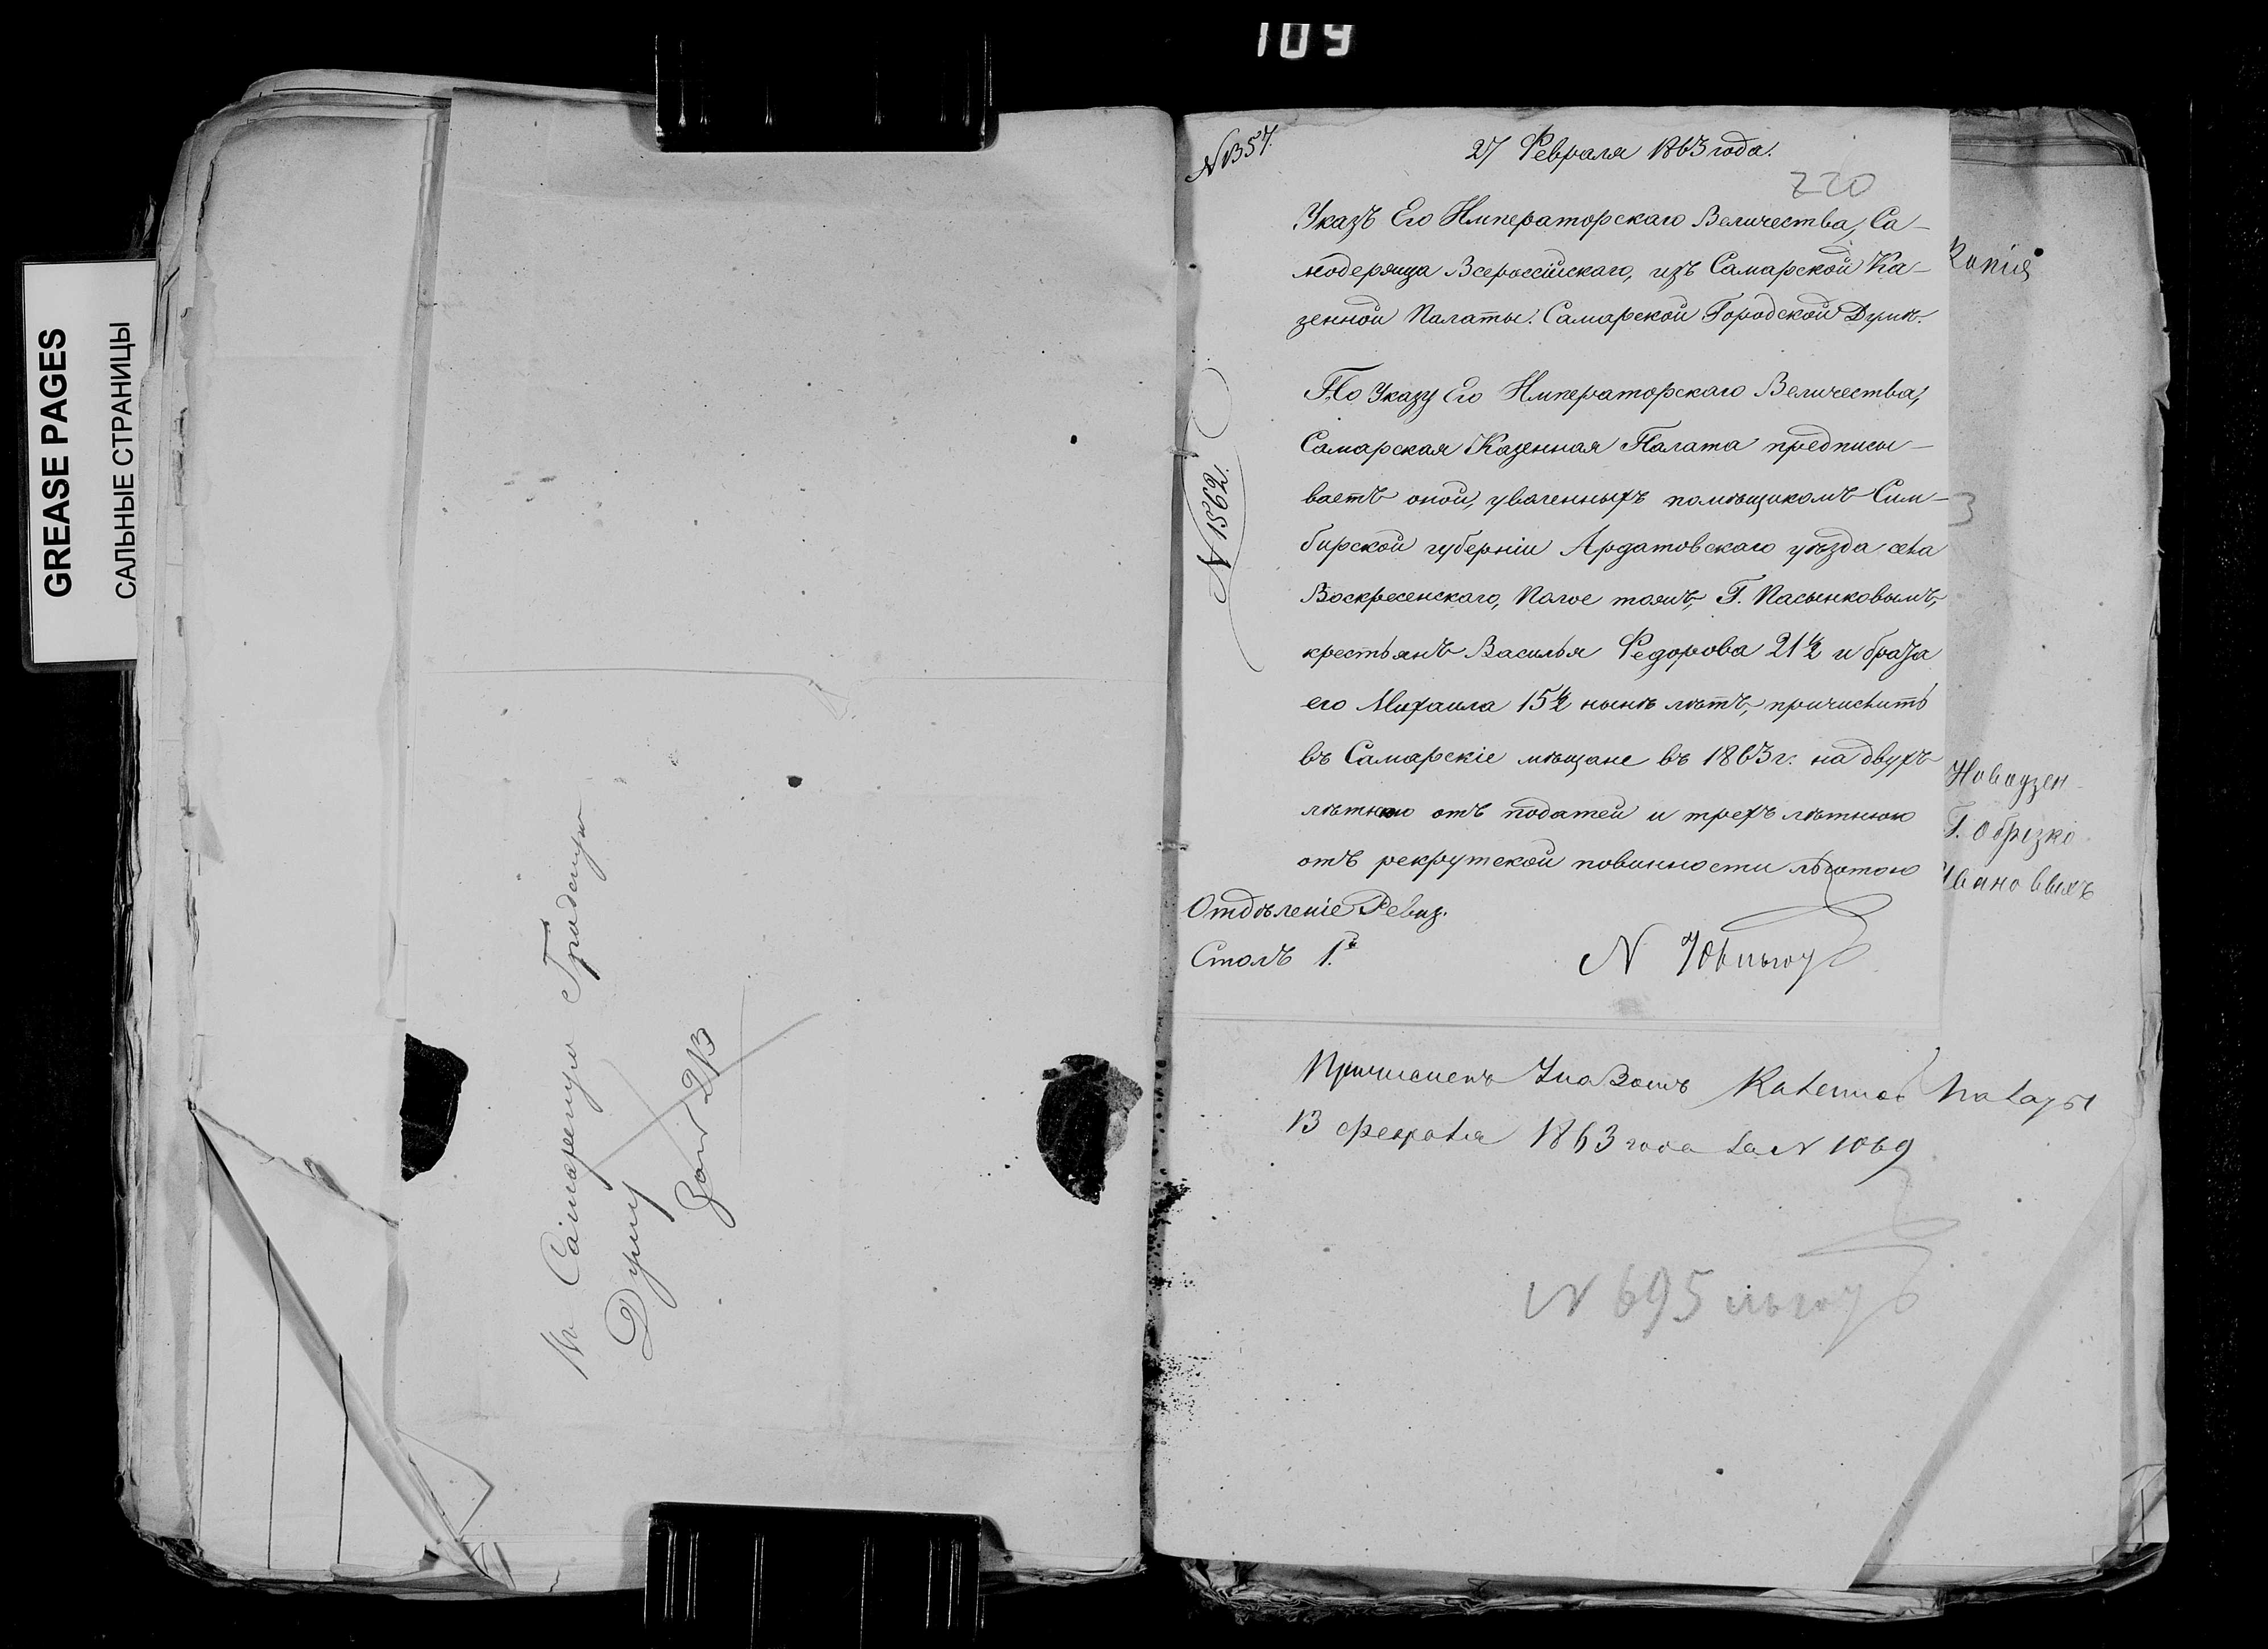 109
GREASE PAGES
САЛЬНЫЕ СТРАНИЦЫ
Въ Самарскую Градскую
Думу
N 1357.
27 Февраля 1863 года.
220
Указъ Его Императорскаго Величества, Са-
модержца Всероссійскаго, изъ Самарской Ка-
зенной Палаты. Самарской Городской Думѣ.
N 1562.
По Указу Его Императорскаго Величества,
Самарская Казенная Палата предписы-
ваетъ оной, уволенныхъ помѣщикомъ Сим-
бирской губерніи Ардатовскаго уѣзда села
Воскресенскаго, Полое тожъ, Г. Пасынковымъ,
крестьянъ Василья Федорова 21½ и брата
его Михаила 15½ нынѣ лѣтъ, причислить
въ Самарскіе мѣщане въ 1863 г. на двухъ
лѣтнюю отъ податей и трехъ лѣтнюю
отъ рекрутской повинности льготою
Отдѣленіе Ревиз.
Столъ 1.й
Копія
3
Новоузен
Г. Обрезко
Ивановыхъ
Причисленъ Указомъ Казенной Палаты
13 февраля 1863 года за N 1069
N 695